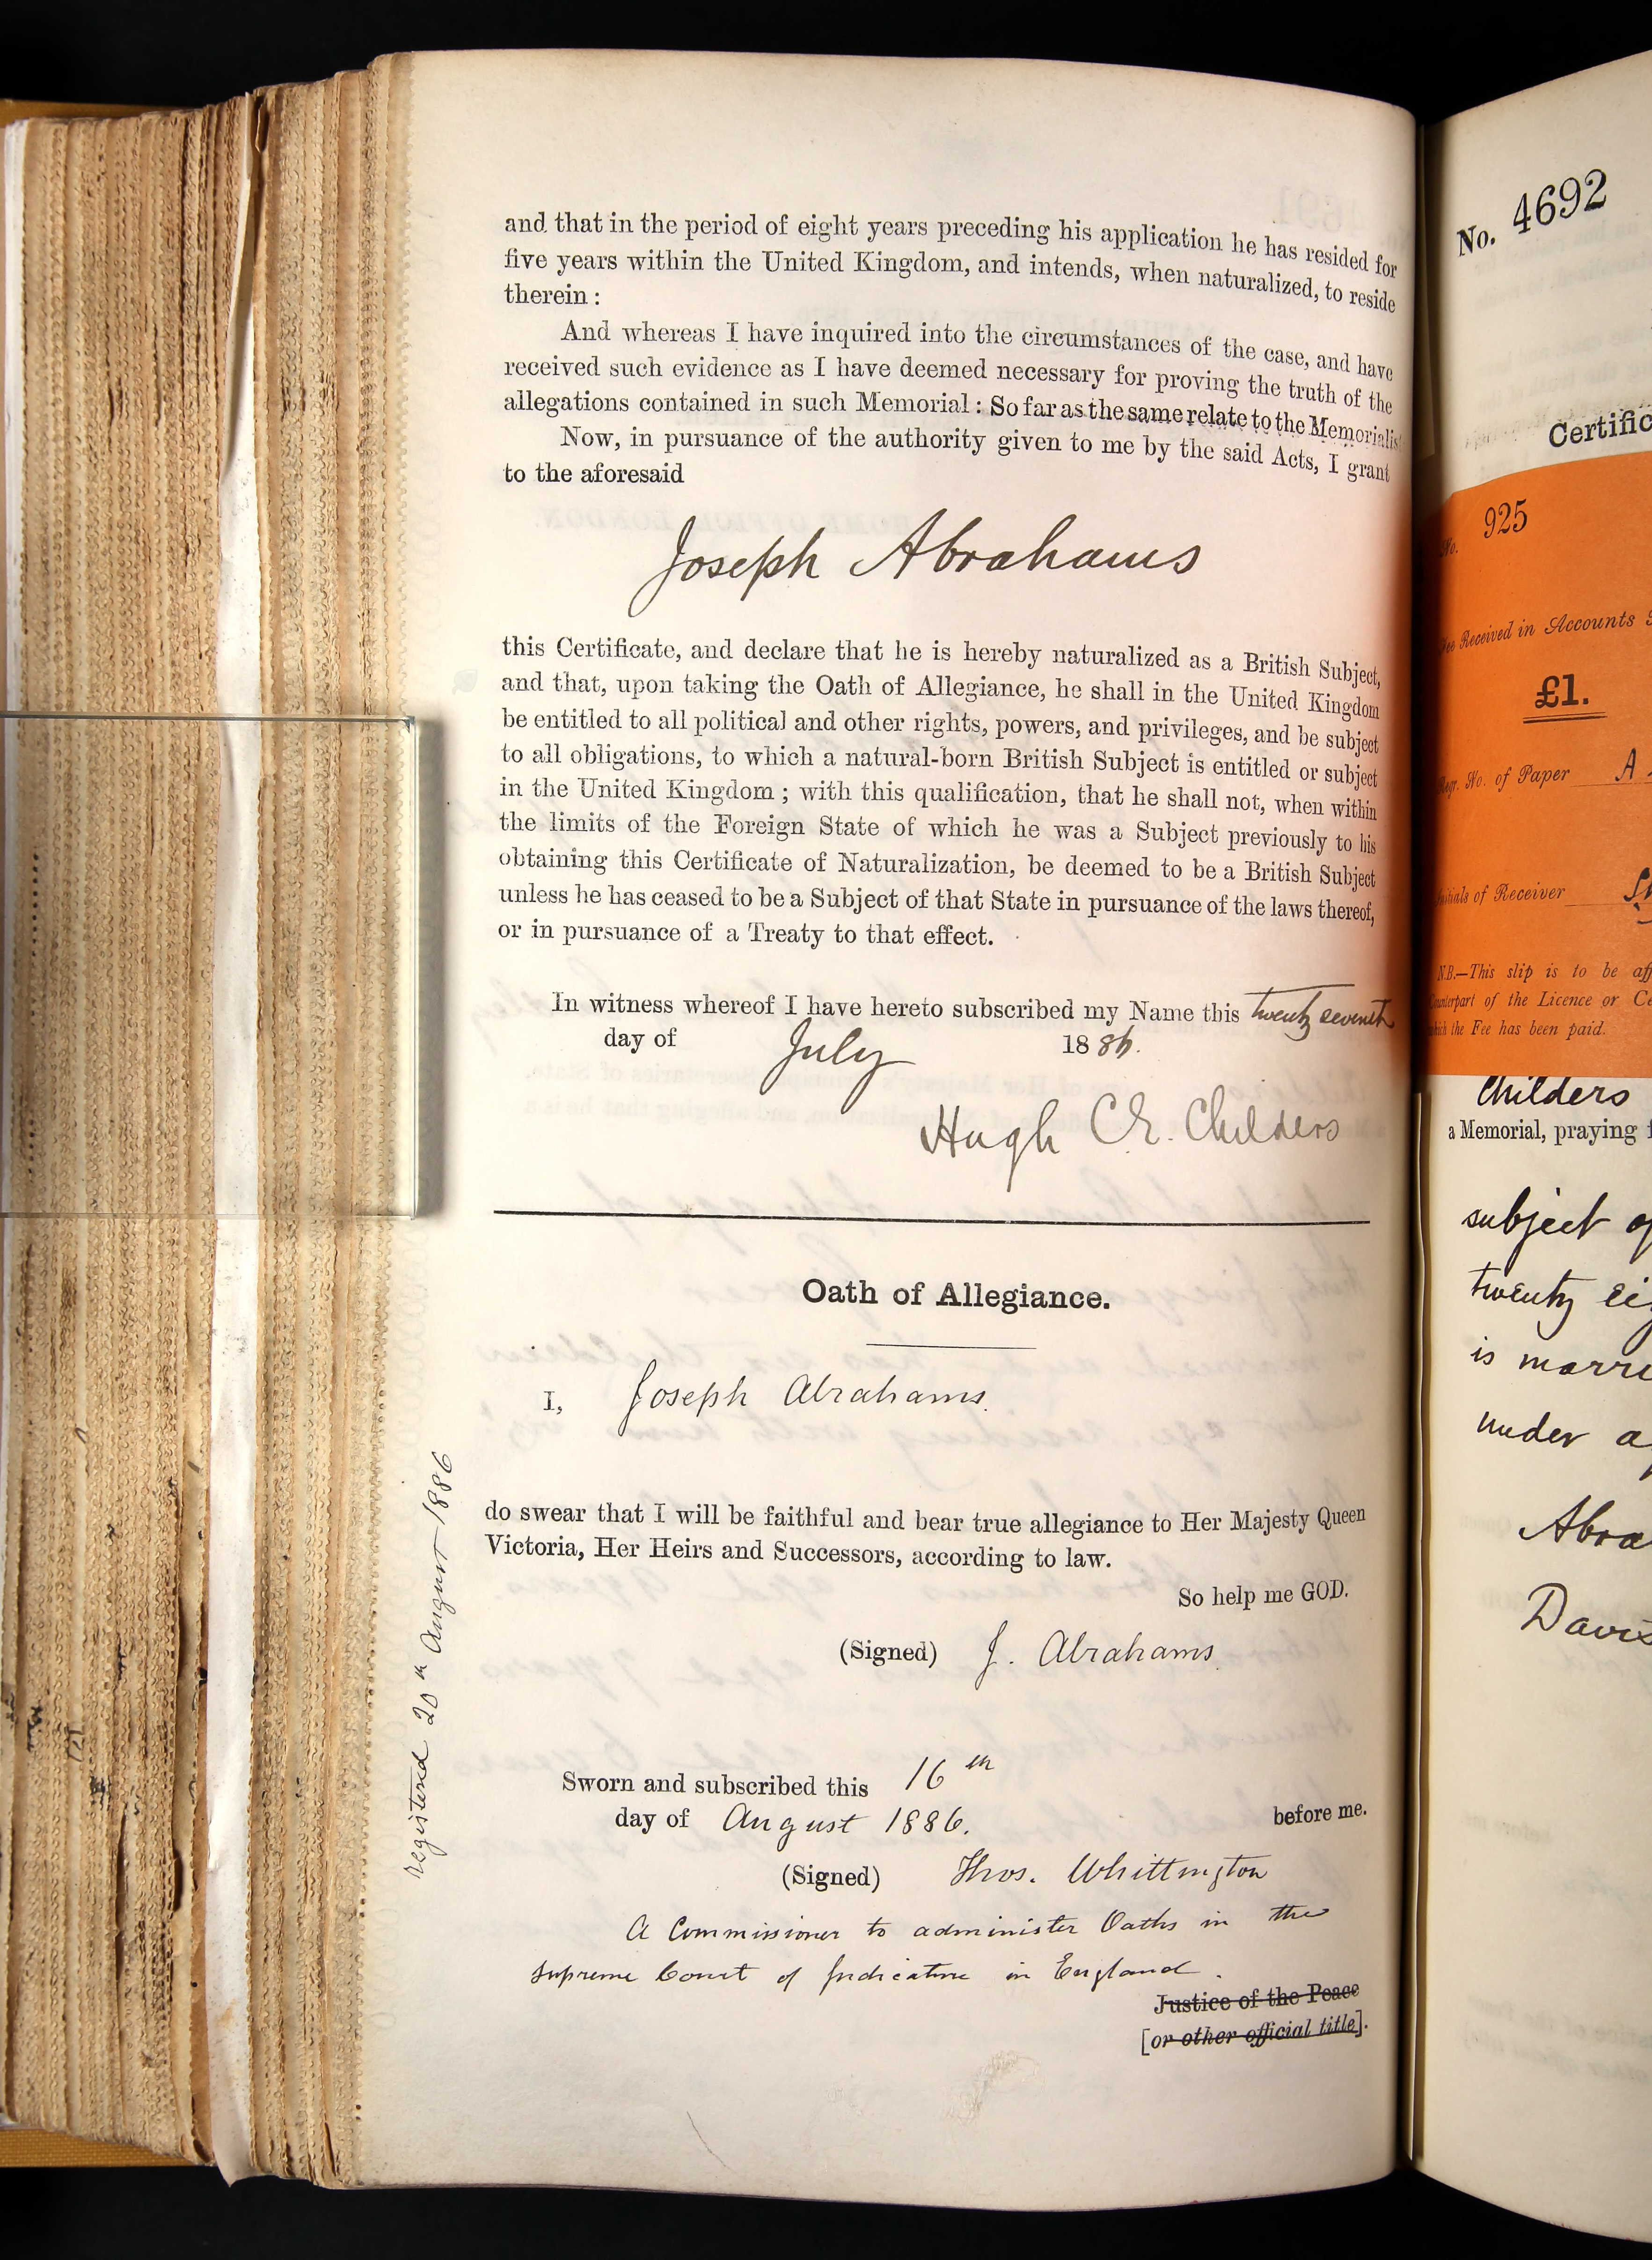 and that in the period of eight years preceding his application he has resided for
five years within the United Kingdom, and intends, when naturalized, to reside
therein :
And whereas I have inquired into the circumstances of the case, and have
received such evidence as I have deemed necessary for proving the truth of the
allegations contained in such Memorial : So far as the same relate to the Memorialis
Now, in pursuance of the authority given to me by the said Acts, I grant
to the aforesaid
Joseph Abrahams
this Certificate, and declare that he is hereby naturalized as a British Subject,
and that, upon taking the Oath of Allegiance, he shall in the United Kingdom
be entitled to all political and other rights, powers, and privileges, and be subject
to all obligations, to which a natural-born British Subject is entitled or subject
in the United Kingdom ; with this qualification, that he shall not, when within
the limits of the Foreign State of which he was a Subject previously to his
obtaining this Certificate of Naturalization, be deemed to be a British Subject
unless he has ceased to be a Subject of that State in pursuance of the laws thereof,
or in pursuance of a Treaty to that effect.
In witness whereof I have hereto subscribed my Name this twenty seventh
day of July 1886.
Hugh C. E. Childers
Oath of Allegiance.
I, Joseph Abrahams.
do swear that I will be faithful and bear true allegiance to Her Majesty Queen
Victoria, Her Heirs and Successors, according to law.
So help me GOD.
(Signed) J. Abrahams
Sworn and subscribed this 16th
day of August 1886. before me.
(Signed) Thos. Whittington
A Commissioner to administer Oaths in the
Supreme Court of Judicature in England.
Justice of the Peace
[or other official title].
registered 20th August 1886
No. 4692
Certific
No. 925
Fee Received in Accounts
£1.
Regr. No. of Paper A
Initials of Receiver
N.B.—This slip is to be aff
Counterpart of the Licence or Ce
which the Fee has been paid.
Childers
a Memorial, praying f
subject of
twenty ei
is marri
under a
Abra
Davi